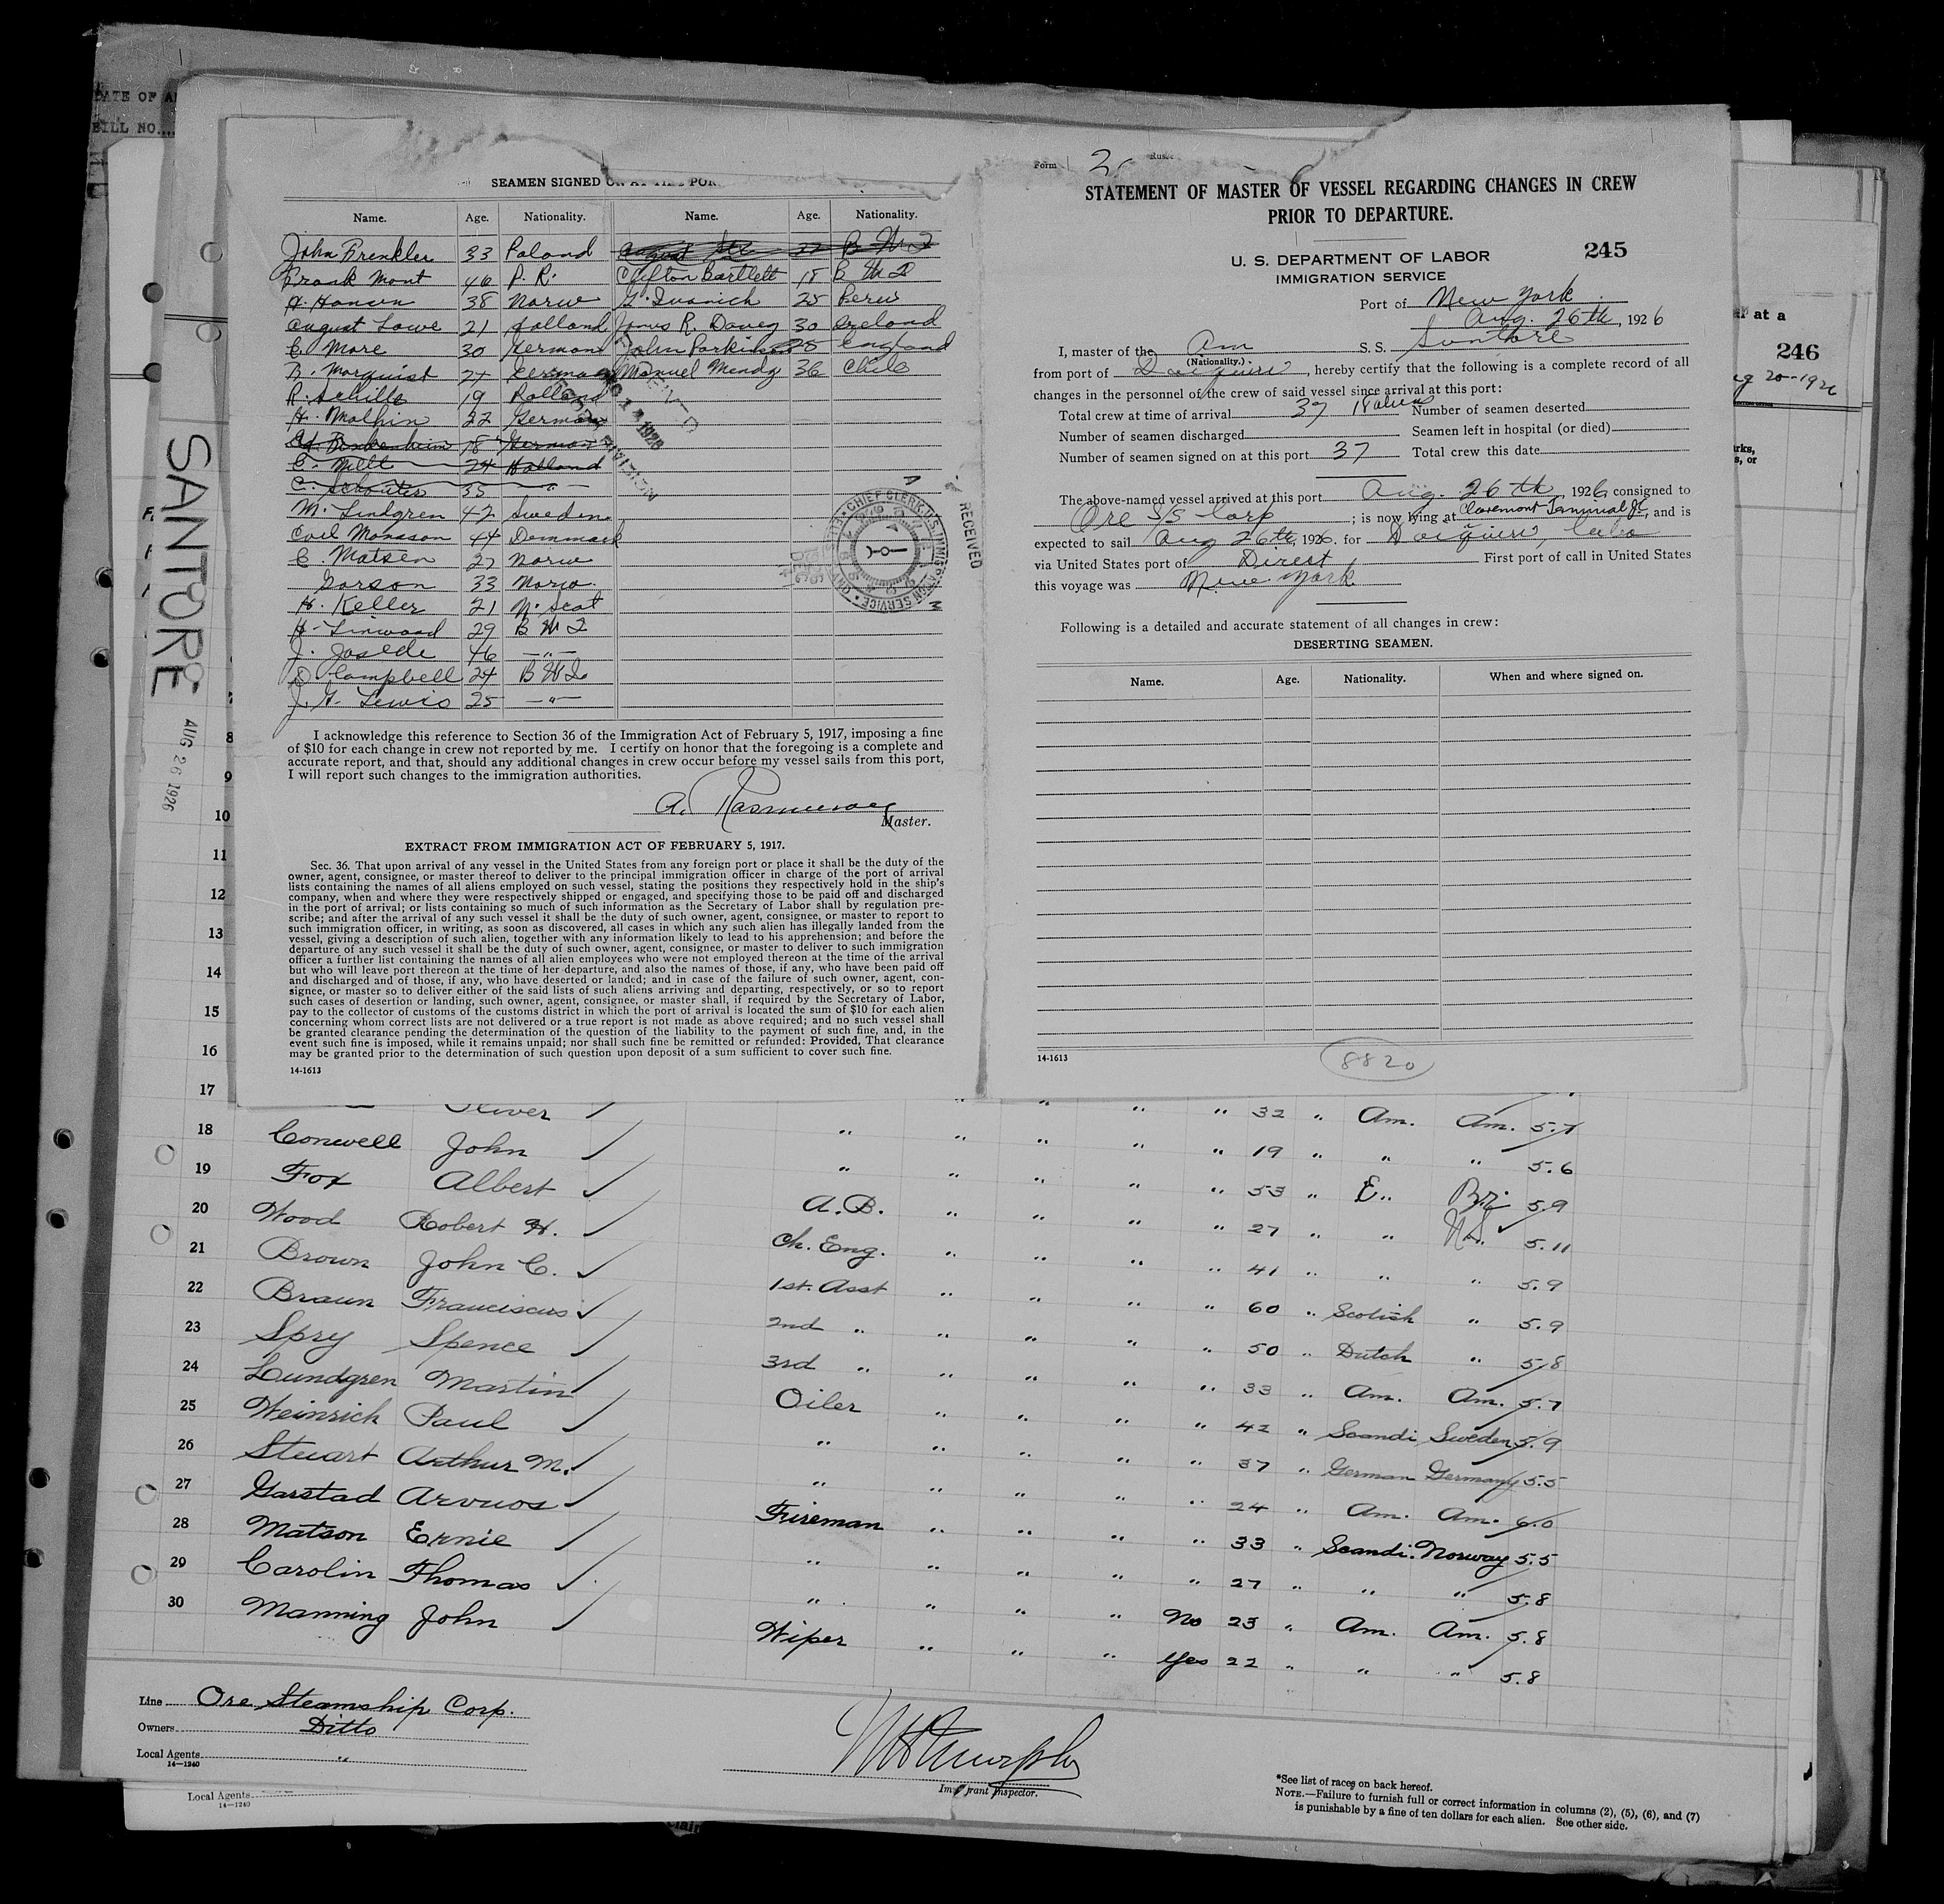 DATE OF
BILL NO.
SEAMEN SIGNED ON AT THIS POR
Name. Age. Nationality. Name. Age. Nationality.
John Frenkler 33 Poland
Frank Mont 46 P. R. Clifton Bartlett 18 B W I
H. Hansen 38 Norw G. Ivanich 25 Peru
August Lowe 21 Holland 30 Ireland
C. More 30 German John Parkins 25 England
B. Marquist 27 German Manuel Mendz 36 Chile
R. Schille 19 Holland
H. Malpin 22 German
18 German
C. Mill 24 Holland
C. Schouter 35 -"-
M. Lindgren 42 Sweden
Carl Monsson 44 Denmark
E. Matsen 27 Norw
Garson 33 Norw.
H. Keller 21 N. Scot
H. Linwood 29 B W I
J. 46 -"-
D Campbell 24 B W I.
J. H. Lewis 25 -"-
I acknowledge this reference to Section 36 of the Immigration Act of February 5, 1917, imposing a fine
of $10 for each change in crew not reported by me. I certify on honor that the foregoing is a complete and
accurate report, and that, should any additional changes in crew occur before my vessel sails from this port,
I will report such changes to the immigration authorities.
Master.
EXTRACT FROM IMMIGRATION ACT OF FEBRUARY 5, 1917.
Sec. 36. That upon arrival of any vessel in the United States from any foreign port or place it shall be the duty of the
owner, agent, consignee, or master thereof to deliver to the principal immigration officer in charge of the port of arrival
lists containing the names of all aliens employed on such vessel, stating the positions they respectively hold in the ship's
company, when and where they were respectively shipped or engaged, and specifying those to be paid off and discharged
in the port of arrival; or lists containing so much of such information as the Secretary of Labor shall by regulation pre-
scribe; and after the arrival of any such vessel it shall be the duty of such owner, agent, consignee, or master to report to
such immigration officer, in writing, as soon as discovered, all cases in which any such alien has illegally landed from the
vessel, giving a description of such alien, together with any information likely to lead to his apprehension; and before the
departure of any such vessel it shall be the duty of such owner, agent, consignee, or master to deliver to such immigration
officer a further list containing the names of all alien employees who were not employed thereon at the time of the arrival
but who will leave port thereon at the time of her departure, and also the names of those, if any, who have been paid off
and discharged and of those, if any, who have deserted or landed; and in case of the failure of such owner, agent, con-
signee, or master so to deliver either of the said lists of such aliens arriving and departing, respectively, or so to report
such cases of desertion or landing, such owner, agent, consignee, or master shall, if required by the Secretary of Labor,
pay to the collector of customs of the customs district in which the port of arrival is located the sum of $10 for each alien
concerning whom correct lists are not delivered or a true report is not made as above required; and no such vessel shall
be granted clearance pending the determination of the question of the liability to the payment of such fine, and, in the
event such fine is imposed, while it remains unpaid; nor shall such fine be remitted or refunded: Provided, That clearance
may be granted prior to the determination of such question upon deposit of a sum sufficient to cover such fine.
14-1613
SANTORE
AUG 26 1926
RECEIVED
CHIEF CLERK, U.S. IMMIGRATION SERVICE
Form
STATEMENT OF MASTER OF VESSEL REGARDING CHANGES IN CREW
PRIOR TO DEPARTURE.
245
U. S. DEPARTMENT OF LABOR
IMMIGRATION SERVICE
Port of New York
Aug. 26th, 1926
I, master of the Am S. S. Santore
(Nationality.)
from port of Daiquiri, hereby certify that the following is a complete record of all
changes in the personnel of the crew of said vessel since arrival at this port:
Total crew at time of arrival 37 18 aliens Number of seamen deserted
Number of seamen discharged Seamen left in hospital (or died)
Number of seamen signed on at this port 37 Total crew this date
The above-named vessel arrived at this port Aug. 26th, 1926, consigned to
Ore S/S Corp; is now lying at Claremont Terminal Jc, and is
expected to sail Aug 26th, 1926. for Daiquiri, Cuba
via United States port of Direst First port of call in United States
this voyage was New York
Following is a detailed and accurate statement of all changes in crew:
DESERTING SEAMEN.
Name. Age. Nationality. When and where signed on.
14-1613
8820
at a
246
ug 20-1926
rks,
s, or
8
9
10
11
12
13
14
15
16
17 Oliver " " " " 32 " Am. Am. 5.7
18 Conwell John " " " " " 19 " " " 5.6
19 Fox Albert " " " " " 53 " E.. Br. 5.9
20 Wood Robert H. A.B. " " " " 27 " " U.S. 5.11
21 Brown John C. Ch. Eng. " " " " 41 " " " 5.9
22 Braun Franciscus 1st. Asst " " " " 60 " Scotish " 5.9
23 Spry Spence 2nd " " " " " 50 " Dutch " 5.8
24 Lundgren Martin 3rd " " " " " 33 " Am. Am. 5.7
25 Weinrich Paul Oiler " " " " 42 " Scandi. Sweden 5.9
26 Steuart Arthur M. " " " " " 37 " German Germany 5.5
27 Garstad Arvuos " " " " " 24 " Am. Am. 6.0
28 Matson Ernie Fireman " " " " 33 " Scandi. Norway 5.5
29 Carolin Thomas " " " " " 27 " " " 5.8
30 Manning John " " " " No 23 " Am. Am. 5.8
Wiper " " " Yes 22 " " " 5.8
Line Ore Steamship Corp.
Owners Ditto
Local Agents "
14-1240
Immigrant Inspector.
*See list of races on back hereof.
NOTE.—Failure to furnish full or correct information in columns (2), (5), (6), and (7)
is punishable by a fine of ten dollars for each alien. See other side.
Local Agents
14-1240